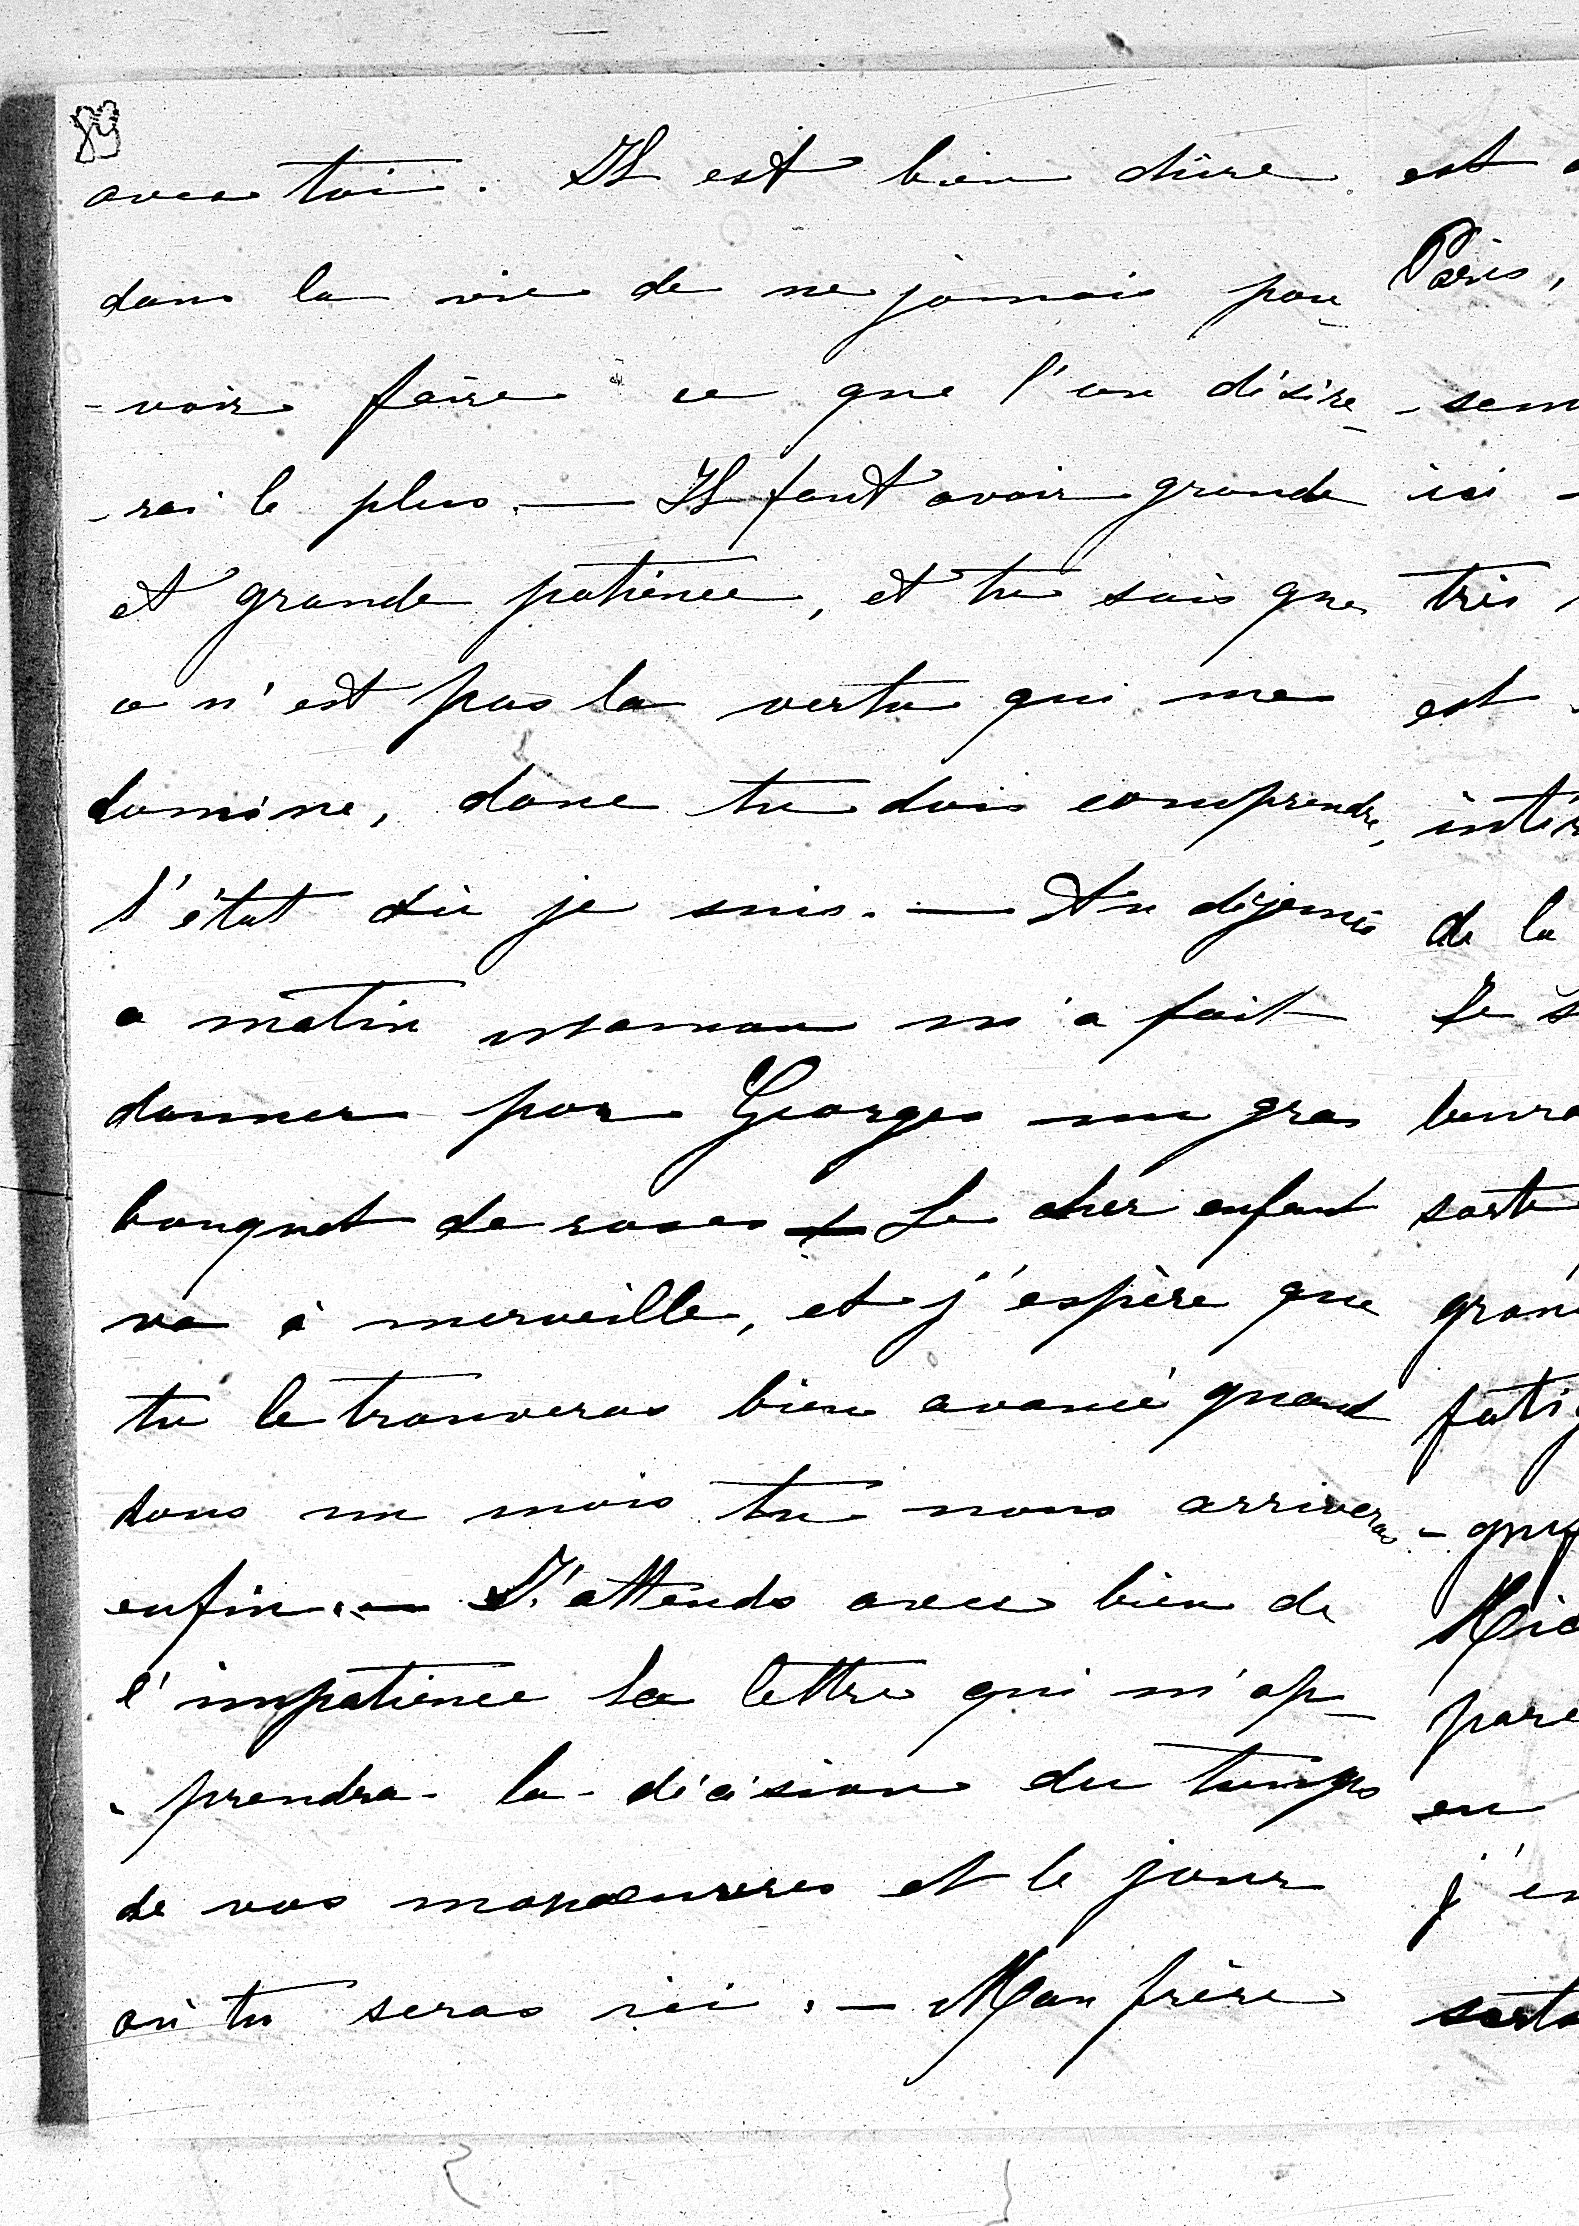 89
avec toi. Il est bien dûre
dans la vie de ne jamais pou
-voir faire ce que l'on désire-
-rai le plus. — Il faut avoir grande
et grande patience, et tu sais que
ce n'est pas la vertu qui me
domine, donc tu dois comprendre,
l'état où je suis. — Au déjeuner
ce matin maman m'a fait
donner par Georges un gros
bouquet de roses. Le cher enfant
va à merveille, et j'espère que
tu le trouveras bien avancé quand
dans un mois tu nous arriveras
enfin. — J'attends avec bien de
l'impatience la lettre qui m'ap-
-prendra la décision du temps
de vos manœuvres et le jour
où tu seras ici. — Mon frère
est
Paris,
-sem
ici -
très
est
intér
de la
Je s
beurr
sorte
gran
fati
-gu
Mic
pare
en
j'en
sorte